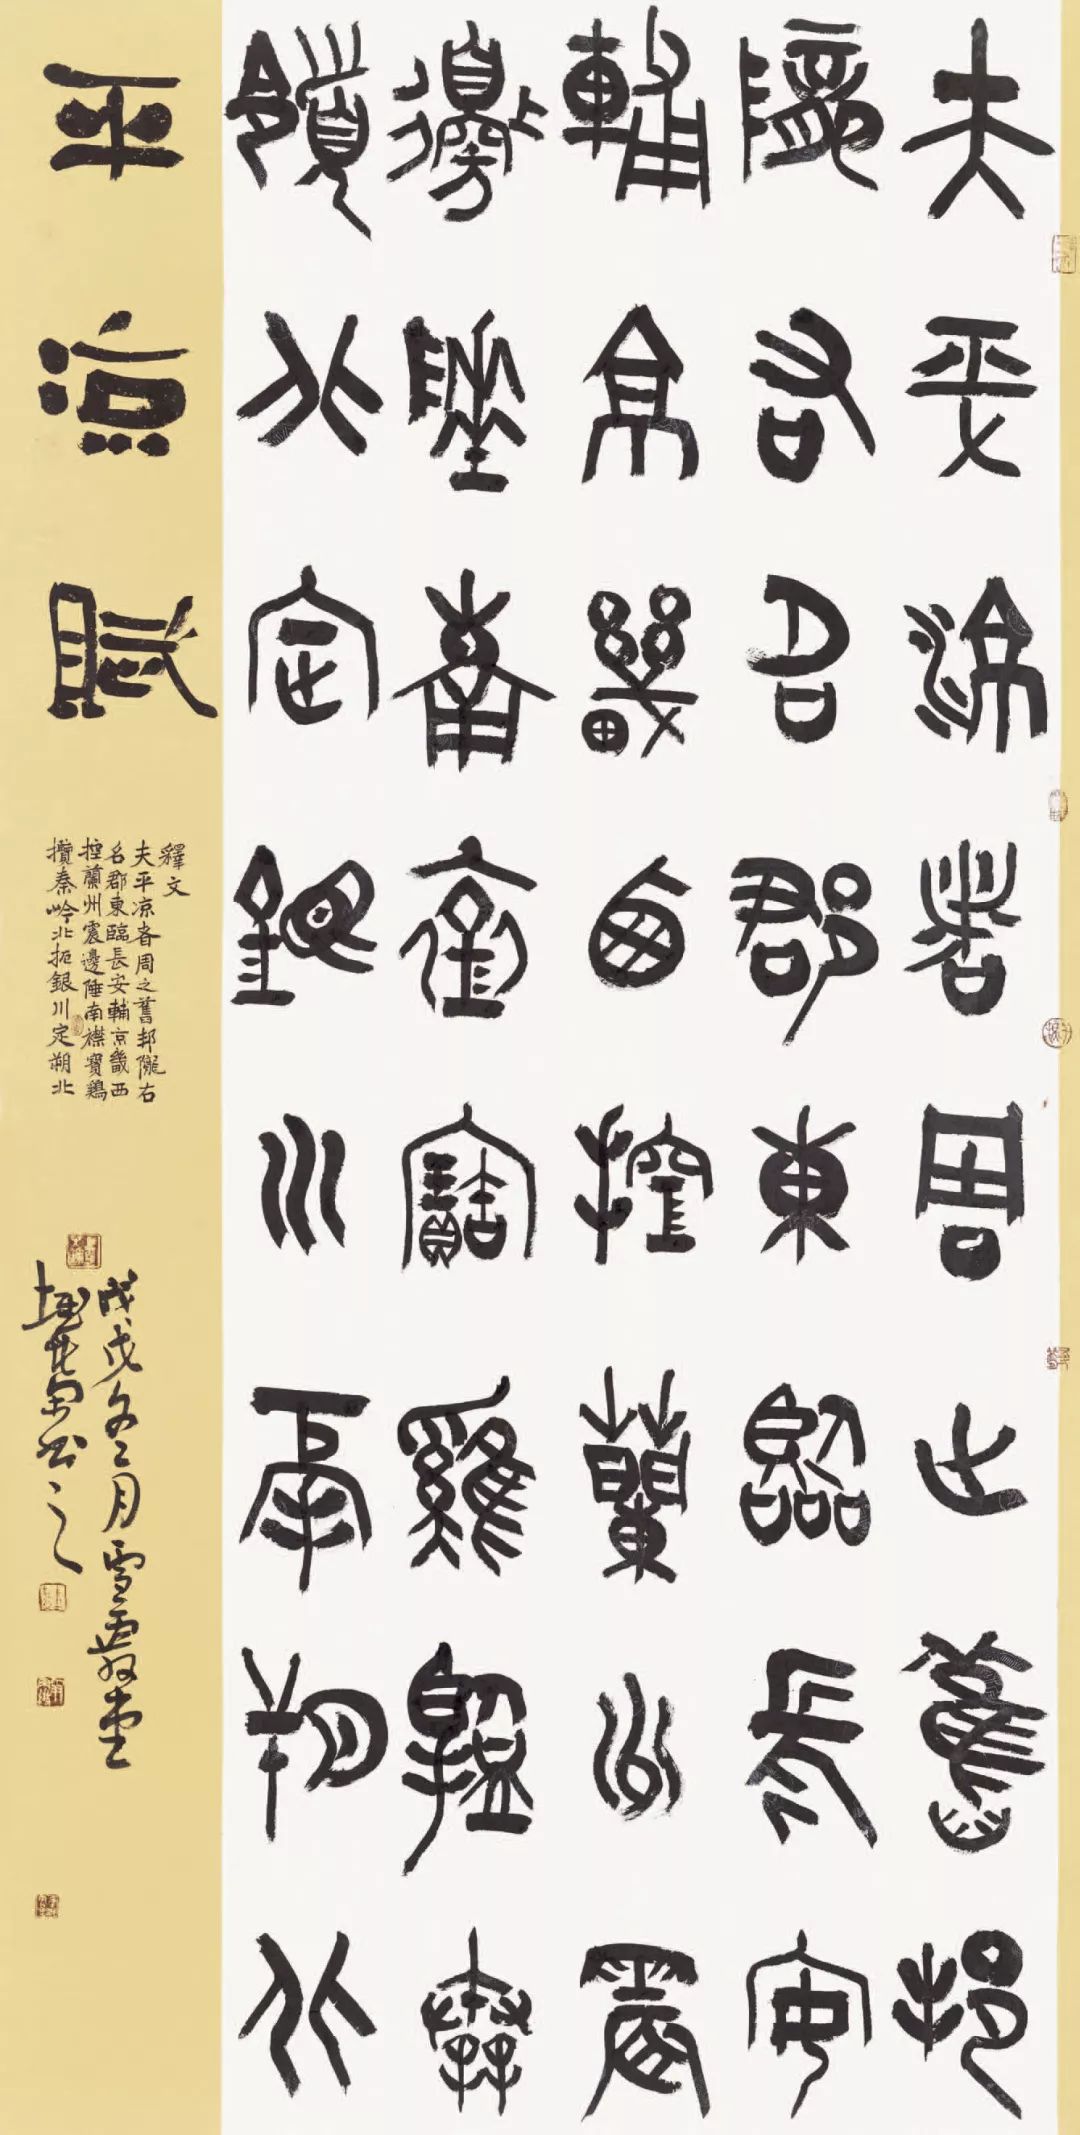 夫平涼者周之舊邦
隴右名郡東臨長安
輔京畿西控蘭州震
邊陲南襟寶雞攬秦
嶺北定銀川鬲朔北
平涼賦
釋文
夫平凉者周之舊邦隴右
名郡東臨長安輔京畿西
控蘭州震邊陲南襟寶鷄
攬秦岭北扼銀川定朔北
戊戌冬月雪堂
書之